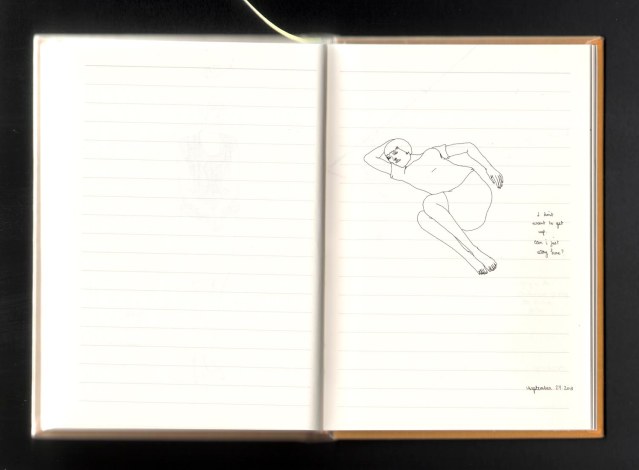 i don't
want to get
up.
can i just
stay here?
september 29 2011